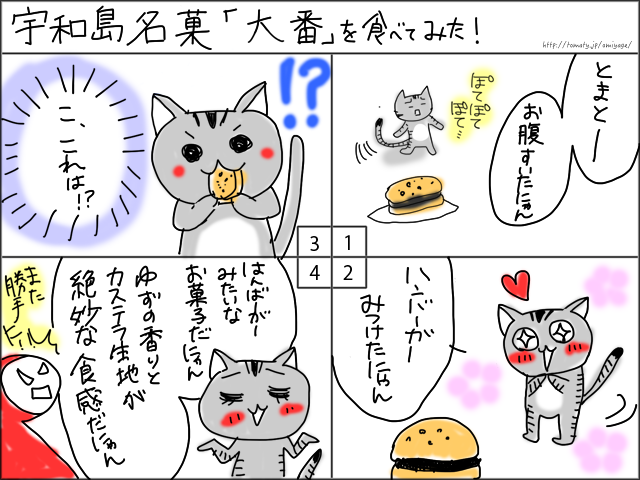 宇和島名菓「大番」を食べてみた!
http://tomaty.jp/omiyage/
とまとー
お腹すいたにゃん
ぽてぽて
ぽて…
1
ハンバーガー
みつけたにゃん
2
!?
こ、
これは!?
3
はんばーがー
みたいな
お菓子だにゃん
ゆずの香りと
カステラ生地が
絶妙な食感だにゃん
また
勝手に…
4